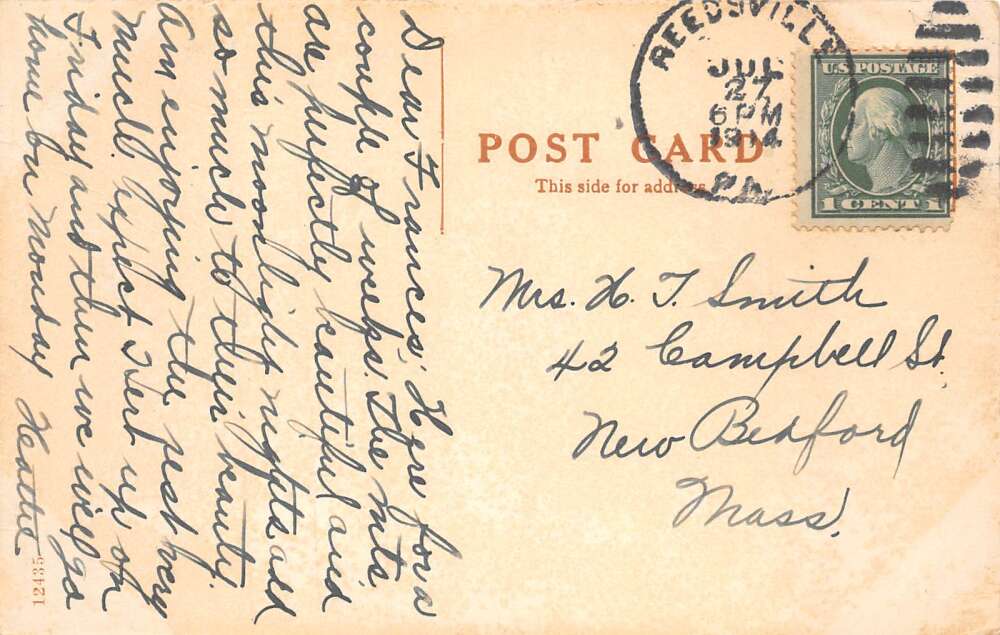 Dear Frances: Here for a
couple of weeks. The mts.
are perfectly beautiful and
this moonlight nights add
so much to their beauty.
Am enjoying the rest very
much. Expect Herb up on
Friday and then we will go
home on Monday Hettie
12435
POST CARD
This side for address.
REEDSVILLE
JUL
27
6 PM
1914
PA.
U.S. POSTAGE
1 CENT 1
Mrs. H. T. Smith
42 Campbell St.
New Bedford
Mass.